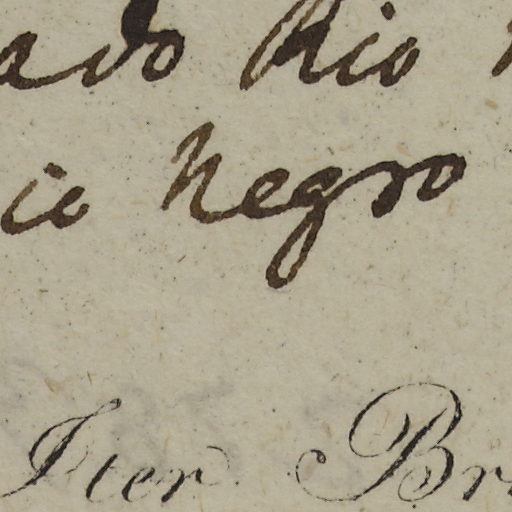 ado Rio
io Negro
Iter Br